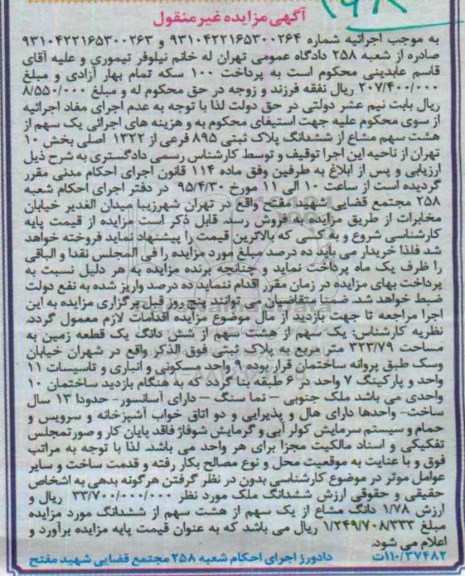 آگهی مزایده غیر منقول
به موجب اجرائیه شماره ۹۳۱۰۴۲۲۱۶۵۳۰۰۲۶۴ و ۹۳۱۰۴۲۲۱۶۵۳۰۰۲۶۳
صادره از شعبه ۲۵۸ دادگاه عمومی تهران له خانم نیلوفر تیموری و علیه آقای
قاسم عابدینی محکوم است به پرداخت ۱۰۰ سکه تمام بهار آزادی و مبلغ
۲۰۷/۴۰۰/۰۰۰ ریال نفقه فرزند و زوجه در حق محکوم له و مبلغ ۸/۵۵۰/۰۰۰
ریال بابت نیم عشر دولتی در حق دولت لذا با توجه به عدم اجرای مفاد اجرائیه
از سوی محکوم علیه جهت استیفای محکوم به و هزینه های اجرائی یک سهم از
هشت سهم مشاع از ششدانگ پلاک ثبتی ۸۹۵ فرعی از ۱۳۲۲ اصلی بخش ۱۰
تهران از ناحیه این اجرا توقیف و توسط کارشناس رسمی دادگستری به شرح ذیل
ارزیابی و پس از ابلاغ به طرفین وفق ماده ۱۱۴ قانون اجرای احکام مدنی مقرر
گردیده است از ساعت ۱۰ الی ۱۱ مورخ ۹۵/۴/۳۰ در دفتر اجرای احکام شعبه
۲۵۸ مجتمع قضایی شهید مفتح واقع در تهران شهرزیبا میدان الغدیر خیابان
مخابرات از طریق مزایده به فروش رسد. قابل ذکر است مزایده از قیمت پایه
کارشناسی شروع و به کسی که بالاترین قیمت را پیشنهاد نماید فروخته خواهد
شد فلذا خریدار می باید ده درصد مبلغ مورد مزایده را فی المجلس نقدا و الباقی
را ظرف یک ماه پرداخت نماید و چنانچه برنده مزایده به هر دلیل نسبت به
پرداخت بهای مزایده در زمان مقرر اقدام ننماید ده درصد واریز شده به نفع دولت
ضبط خواهد شد. ضمنا متقاضیان می توانند پنج روز قبل برگزاری مزایده به این
اجرا مراجعه تا جهت بازدید از مال موضوع مزایده اقدامات لازم معمول گردد.
نظریه کارشناس: یک سهم از هشت سهم از شش دانگ یک قطعه زمین به
مساحت ۳۲۳/۷۹ متر مربع به پلاک ثبتی فوق الذکر واقع در شهران خیابان
وسک طبق پروانه ساختمان قرار بوده ۹ واحد مسکونی و انباری و تاسیسات ۱۱
واحد و پارکینگ ۷ واحد در ۶ طبقه بنا گردد که به هنگام بازدید ساختمان ۱۰
واحدی می باشد ملک جنوبی – نما سنگ – دارای آسانسور- حدودا ۱۳ سال
ساخت- واحدها دارای هال و پذیرایی و دو اتاق خواب آشپزخانه و سرویس و
حمام و سیستم سرمایش کولر آبی و گرمایش شوفاژ فاقد پایان کار و صورتمجلس
تفکیکی و اسناد مالکیت مجزا برای هر واحد می باشد. لذا با توجه به مراتب
فوق و با عنایت به موقعیت محل و نوع مصالح بکار رفته و قدمت ساخت و سایر
عوامل موثر در موضوع کارشناسی بدون در نظر گرفتن هرگونه بدهی به اشخاص
حقیقی و حقوقی ارزش ششدانگ ملک مورد نظر ۳۳/۷۰۰/۰۰۰/۰۰۰ ریال و
ارزش ۱/۷۸ دانگ مشاع از یک سهم از هشت سهم از ششدانگ مورد مزایده
مبلغ ۱/۲۴۹/۷۰۸/۳۳۳ ریال می باشد که به عنوان قیمت پایه مزایده برآورد و
اعلام می شود.
۱۱۰/۳۷۴۸۲ت دادورز اجرای احکام شعبه ۲۵۸ مجتمع قضایی شهید مفتح